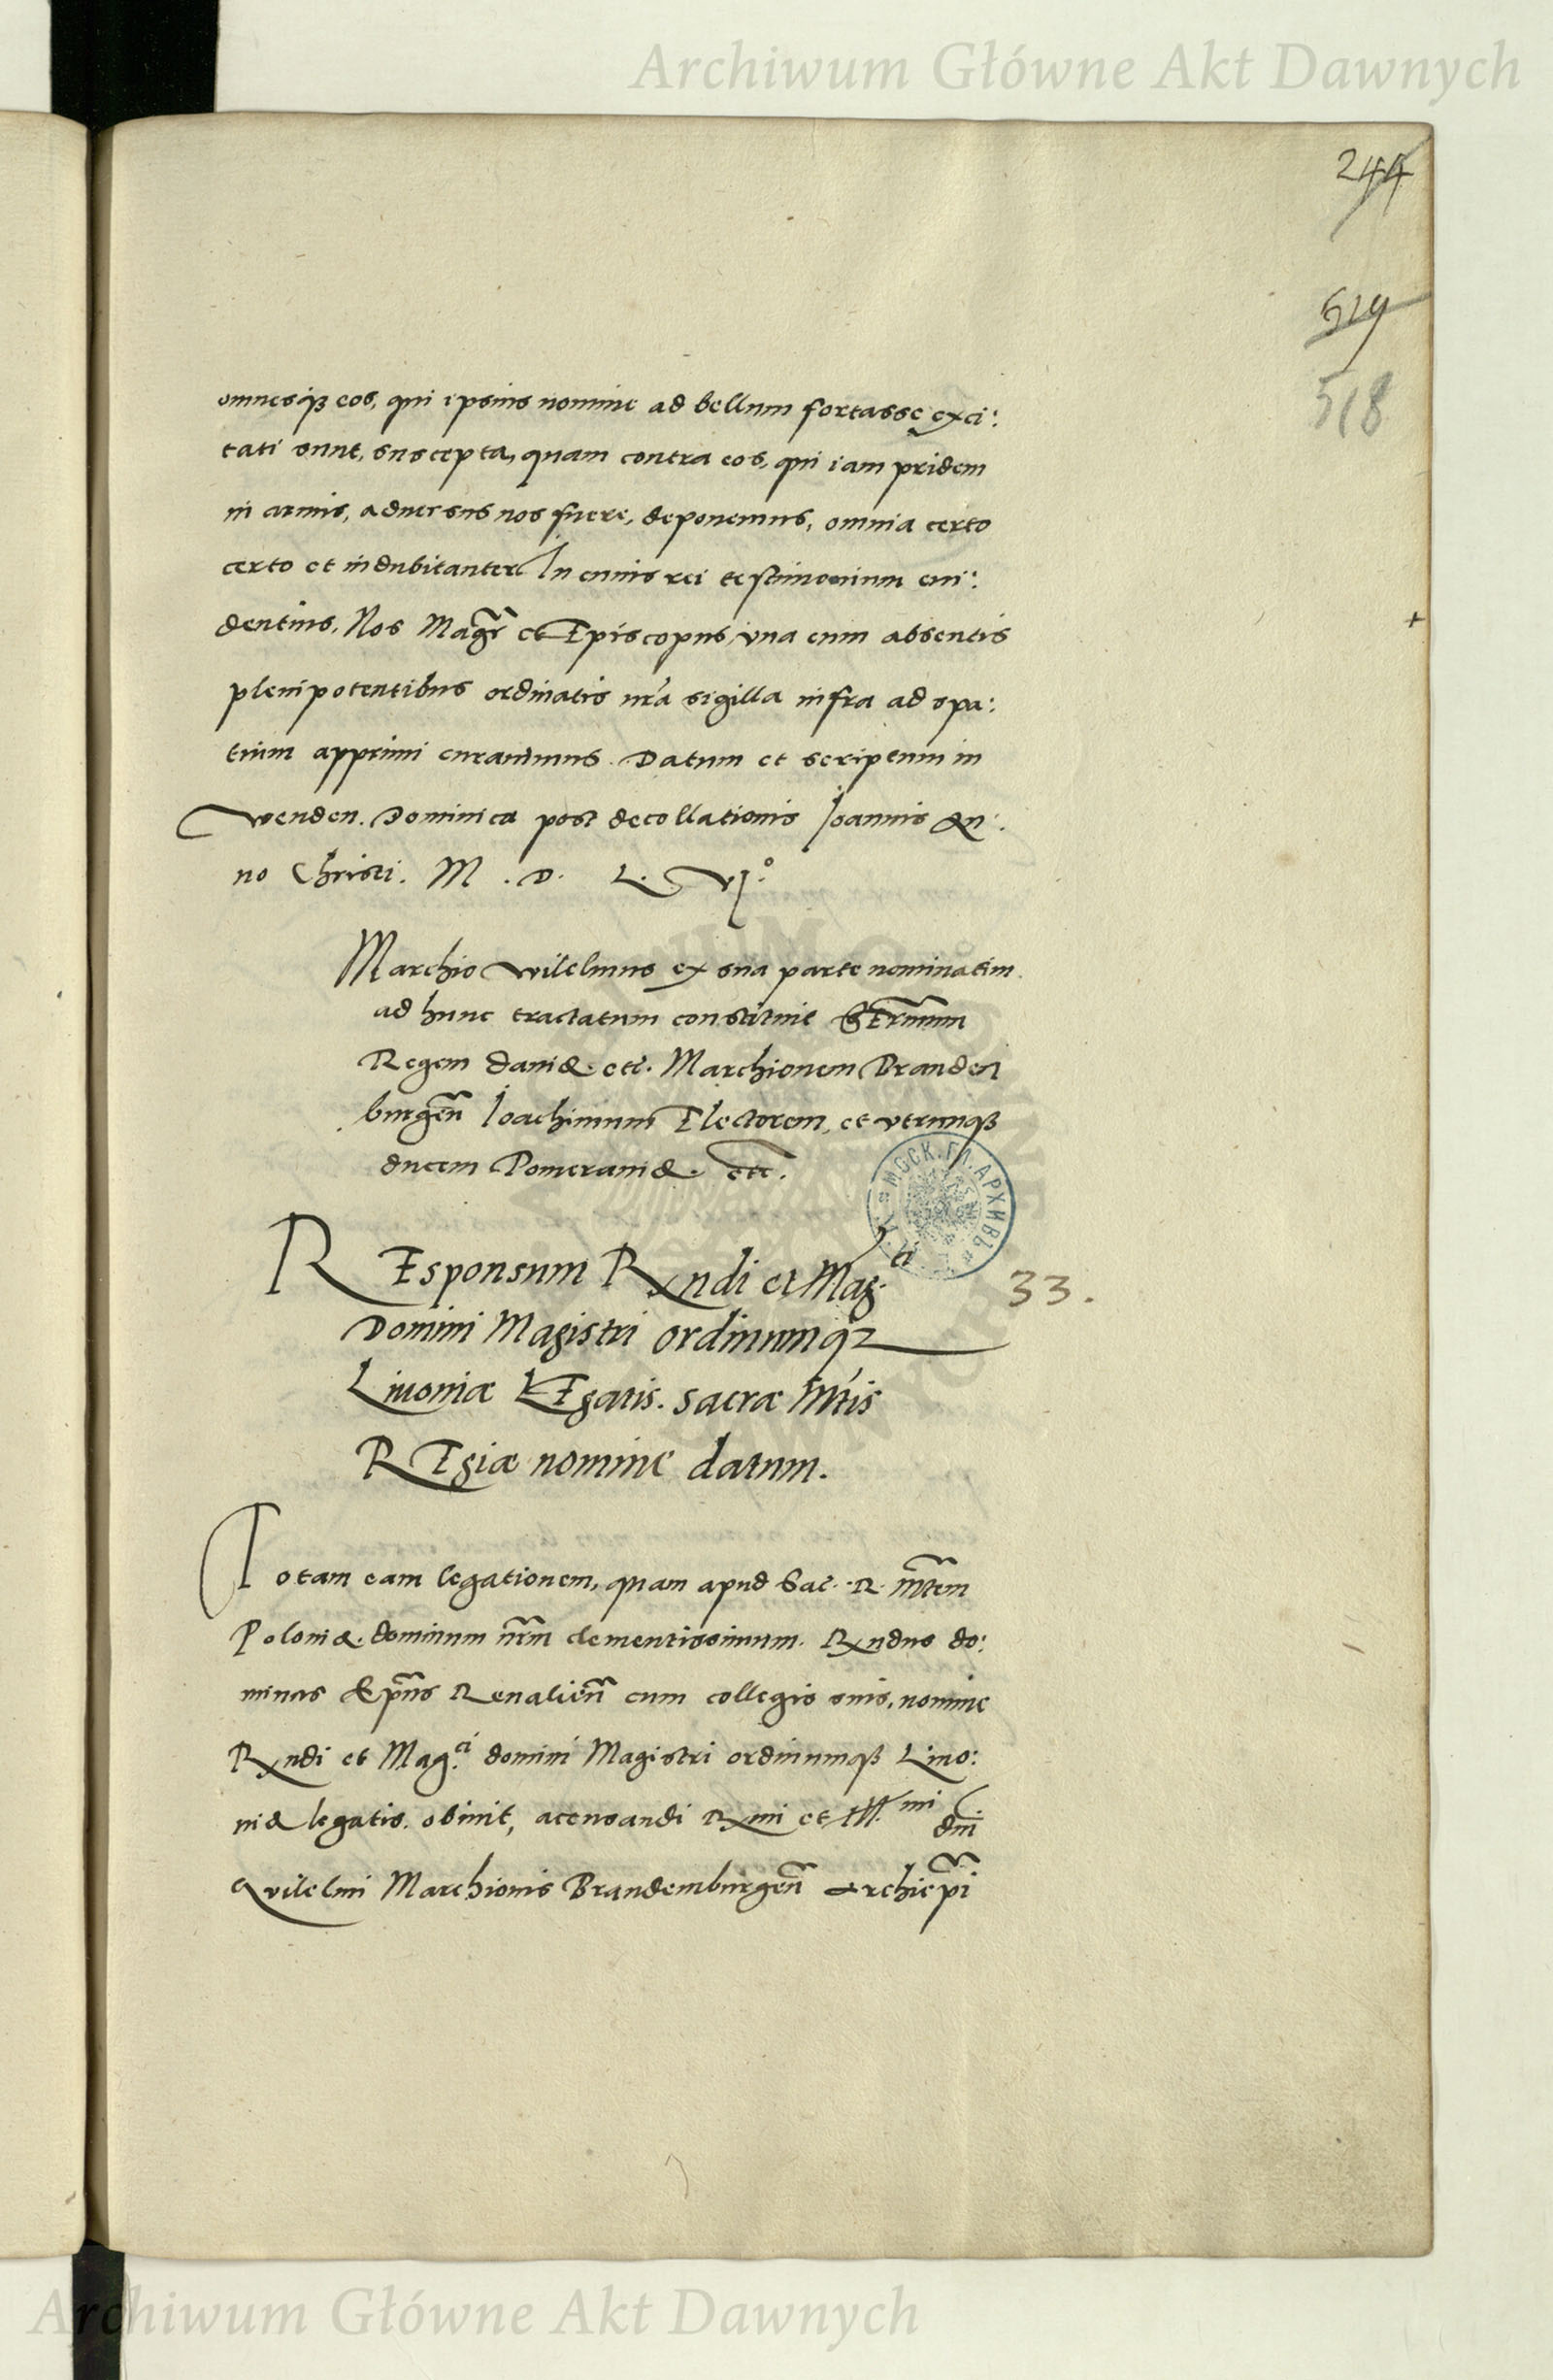 Archiwum Główne Akt Dawnych
244
519
518
omnesqȝ eos, qui ipsius nomine ad bellum fortasse exci:
tati sunt, suscepta, quam contra eos, qui iam pridem
in armis, aduersus nos fuere, deponemus, omnia certo
certo et indubitanter In cuius rei testimonium eui:
dentius, Nos Magr̃ et Episcopus, vna cum absentis
plenipotentibus ordinatis nr̃a sigilla infra ad spa:
tium apprimi curauimus. Datum et scriptum in
Wenden. Dominica post decollationis Joannis An:
no Christi. M. D. L. VI.º
Marchio Wilelmus ex sua parte nominatim
ad hunc tractatum constituit SEr̃mum
Regem Daniæ. etc. Marchionem Branden
burgeñ Joachimum Electorem, et vtrumqȝ
ducem Pomeraniæ. etc.
MОСК. ГЛ. АРХИВЪ
REsponsum Rxndi et Mag.ci
33.
Domini Magistri ordinumqȝ
Liuoniæ LEgatis. sacræ M̃tis
REgiæ nomine datum.
Totam eam legationem, quam apud Sac. R. M̃tem
Poloniæ. dominum nr̃m clementissimum. Rxndus do:
minus Ep̃us Reualieñ cum collegis suis, nomine
Rxndi et Mag.ci domini Magistri ordinumqȝ Liuo:
niæ legatis. obiuit, accusandi Rxmi et Ill.mi dñi
Wilelmi Marchionis Brandemburgeñ Archiep̃i
Archiwum Główne Akt Dawnych